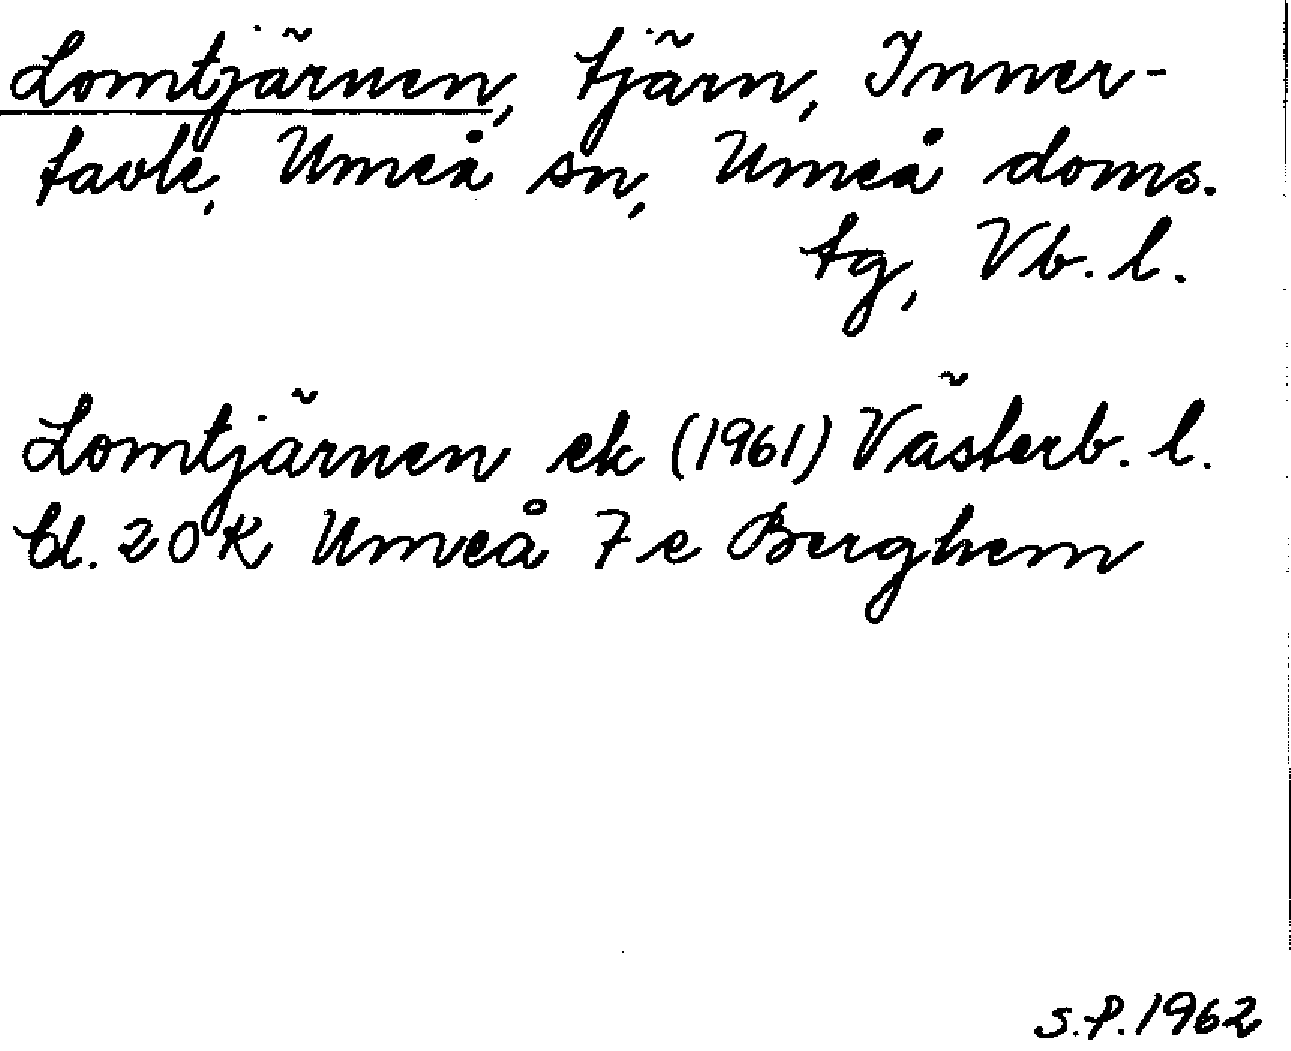 Lomtjärnen, tjärn, Inner-
tavle, Umeå sn, Umeå doms.
tg, Vb. l.
Lomtjärnen ek (1961) Västerb. l.
bl. 20 K Umeå 7 e Berghem
S.P. 1962